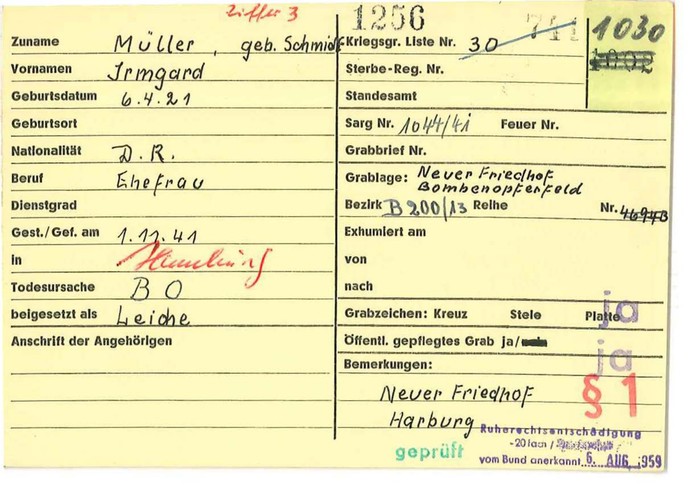 Ziffer 3
1256
741
1030
1002
Zuname Müller, geb. Schmidt
Vornamen Irmgard
Geburtsdatum 6.4.21
Geburtsort
Nationalität D.R.
Beruf Ehefrau
Dienstgrad
Gest./Gef. am 1.11.41
in Hamburg
Todesursache BO
beigesetzt als Leiche
Anschrift der Angehörigen
Kriegsgr. Liste Nr. 30
Sterbe-Reg. Nr.
Standesamt
Sarg Nr. 1044/41 Feuer Nr.
Grabbrief Nr.
Grablage: Neuer Friedhof
Bombenopferfeld
Bezirk B200/13 Reihe Nr.
Exhumiert am
von
nach
Grabzeichen: Kreuz Stele Platte
ja
Öffentl. gepflegtes Grab ja/nein
ja
Bemerkungen:
§ 1
Neuer Friedhof
Harburg
geprüft
Ruherechtsentschädigung
vom Bund anerkannt 6. AUG. 1959